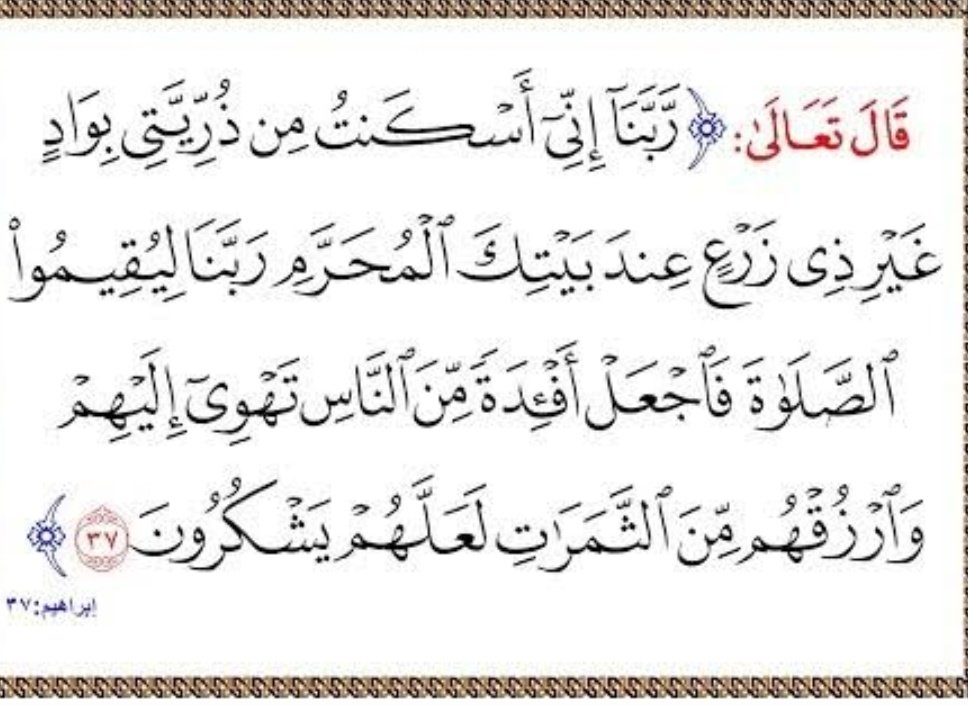 قَالَ تَعَالَىٰ: ﴿ رَّبَّنَآ إِنِّىٓ أَسْكَنتُ مِن ذُرِّيَّتِى بِوَادٍ
غَيْرِ ذِى زَرْعٍ عِندَ بَيْتِكَ ٱلْمُحَرَّمِ رَبَّنَا لِيُقِيمُوا۟
ٱلصَّلَوٰةَ فَٱجْعَلْ أَفْـِٔدَةً مِّنَ ٱلنَّاسِ تَهْوِىٓ إِلَيْهِمْ
وَٱرْزُقْهُم مِّنَ ٱلثَّمَرَٰتِ لَعَلَّهُمْ يَشْكُرُونَ ٣٧ ﴾
إبراهيم:٣٧